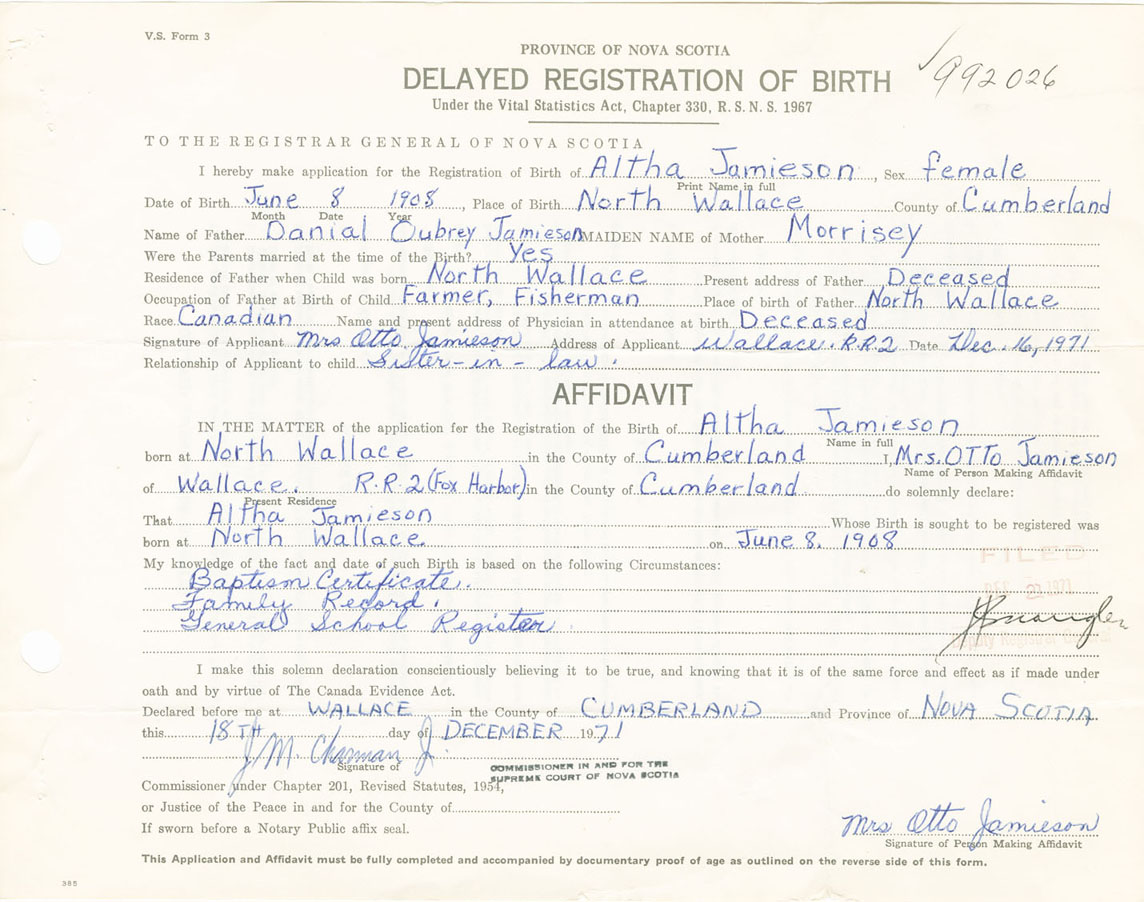 V.S. Form 3
PROVINCE OF NOVA SCOTIA
DELAYED REGISTRATION OF BIRTH
992026
Under the Vital Statistics Act, Chapter 330, R.S.N.S. 1967
TO THE REGISTRAR GENERAL OF NOVA SCOTIA
I hereby make application for the Registration of Birth of Altha Jamieson, Sex female
Print Name in full
Date of Birth June 8 1908, Place of Birth North Wallace County of Cumberland
Month Date Year
Name of Father Danial Oubrey Jamieson MAIDEN NAME of Mother Morrisey
Were the Parents married at the time of the Birth? Yes
Residence of Father when Child was born North Wallace Present address of Father Deceased
Occupation of Father at Birth of Child Farmer, Fisherman Place of birth of Father North Wallace
Race Canadian Name and present address of Physician in attendance at birth Deceased
Signature of Applicant Mrs Otto Jamieson Address of Applicant Wallace. R.R.2 Date Dec. 16, 1971
Relationship of Applicant to child Sister-in-law.
AFFIDAVIT
IN THE MATTER of the application for the Registration of the Birth of Altha Jamieson
Name in full
born at North Wallace in the County of Cumberland I, Mrs. OTTO Jamieson
Name of Person Making Affidavit
of Wallace. R.R.2 (Fox Harbor) in the County of Cumberland do solemnly declare:
Present Residence
That Altha Jamieson Whose Birth is sought to be registered was
born at North Wallace on June 8. 1908
FILED
My knowledge of the fact and date of such Birth is based on the following Circumstances:
Baptism Certificate.
Family Record.
General School Register
I make this solemn declaration conscientiously believing it to be true, and knowing that it is of the same force and effect as if made under
oath and by virtue of The Canada Evidence Act.
Declared before me at WALLACE in the County of CUMBERLAND and Province of NOVA SCOTIA
this 18TH day of DECEMBER 1971
J. M. Charman Jr.
Signature of
COMMISSIONER IN AND FOR THE
SUPREME COURT OF NOVA SCOTIA
Commissioner under Chapter 201, Revised Statutes, 1954,
or Justice of the Peace in and for the County of
If sworn before a Notary Public affix seal.
Mrs Otto Jamieson
Signature of Person Making Affidavit
This Application and Affidavit must be fully completed and accompanied by documentary proof of age as outlined on the reverse side of this form.
385